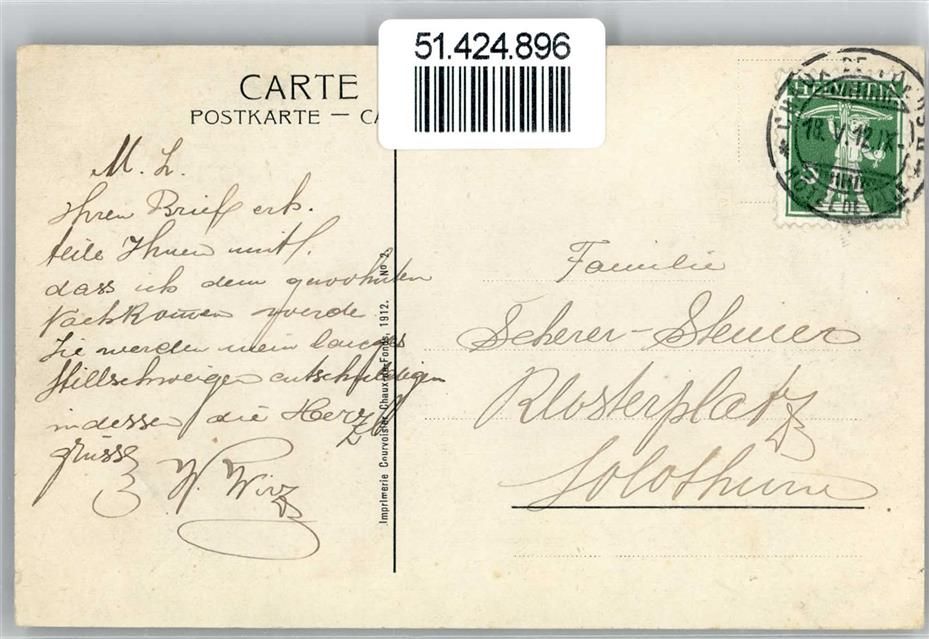 51.424.896
CARTE
POSTKARTE — CA
M. L.
Ihren Brief erh.
teile Ihnen mit.
dass ich dem gewohnten
Nachkommen werde
Sie werden mein langes
Stillschweigen entschuldigen
indessen die Herzl
grüsse
W. Wirz
Imprimerie Courvoisier Chaux-de-Fonds, 1912. No 2.
18. V. 12. IX
HOTEL DE VILLE
Familie
Scherer-Steiner
Klosterplatz
Solothurn